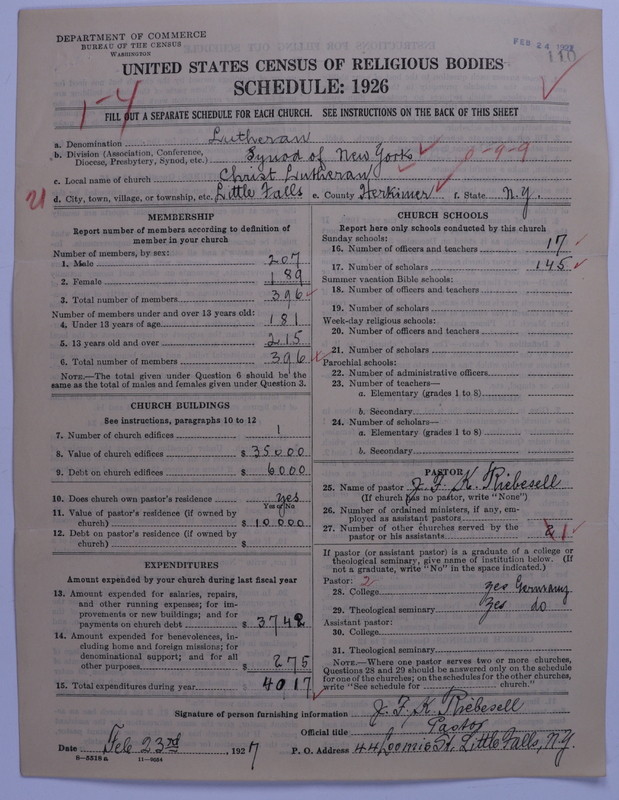 DEPARTMENT OF COMMERCE
BUREAU OF THE CENSUS
WASHINGTON
FEB 24 1927
110
UNITED STATES CENSUS OF RELIGIOUS BODIES
SCHEDULE: 1926
1-4
FILL OUT A SEPARATE SCHEDULE FOR EACH CHURCH. SEE INSTRUCTIONS ON THE BACK OF THIS SHEET
a. Denomination Lutheran
b. Division (Association, Conference, Diocese, Presbytery, Synod, etc.) Synod of New York
0-9-9
c. Local name of church Christ Lutheran
21
d. City, town, village, or township, etc. Little Falls e. County Herkimer f. State N.Y.
MEMBERSHIP
Report number of members according to definition of
member in your church
Number of members, by sex:
1. Male 207
2. Female 189
3. Total number of members 396
Number of members under and over 13 years old:
4. Under 13 years of age 181
5. 13 years old and over 215
6. Total number of members 396
NOTE.—The total given under Question 6 should be the
same as the total of males and females given under Question 3.
CHURCH BUILDINGS
See instructions, paragraphs 10 to 12
7. Number of church edifices 1
8. Value of church edifices $ 35000
9. Debt on church edifices $ 6000
10. Does church own pastor's residence yes
Yes or No
11. Value of pastor's residence (if owned by
church) $ 10.000
12. Debt on pastor's residence (if owned by
church) $
EXPENDITURES
Amount expended by your church during last fiscal year
13. Amount expended for salaries, repairs,
and other running expenses; for im-
provements or new buildings; and for
payments on church debt $ 3742
14. Amount expended for benevolences, in-
cluding home and foreign missions; for
denominational support; and for all
other purposes $ 275
15. Total expenditures during year 4017
CHURCH SCHOOLS
Report here only schools conducted by this church
Sunday schools:
16. Number of officers and teachers 17
17. Number of scholars 145
Summer vacation Bible schools:
18. Number of officers and teachers
19. Number of scholars
Week-day religious schools:
20. Number of officers and teachers
21. Number of scholars
Parochial schools:
22. Number of administrative officers
23. Number of teachers—
a. Elementary (grades 1 to 8)
b. Secondary
24. Number of scholars—
a. Elementary (grades 1 to 8)
b. Secondary
PASTOR
25. Name of pastor J. F. K. Riebesell
(If church has no pastor, write "None")
26. Number of ordained ministers, if any, em-
ployed as assistant pastors
27. Number of other churches served by the
pastor or his assistants 1
If pastor (or assistant pastor) is a graduate of a college or
theological seminary, give name of institution below. (If
not a graduate, write "No" in the space indicated.)
Pastor: 2
28. College yes Germany
29. Theological seminary Yes do
Assistant pastor:
30. College
31. Theological seminary
NOTE.—Where one pastor serves two or more churches,
Questions 28 and 29 should be answered only on the schedule
for one of the churches; on the schedules for the other churches,
write "See schedule for church."
Signature of person furnishing information J. F. K. Riebesell
Official title Pastor
Date Feb 23rd, 1927 P. O. Address 44 Loomis St. Little Falls, N.Y.
8—5518 a 11—9054